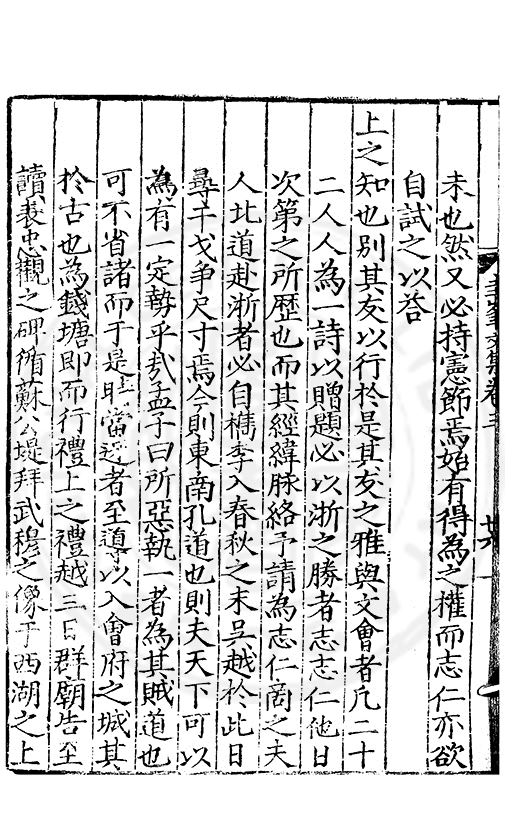 未也然又必持憲節焉始有得為之權而志仁亦欲
自試之以荅
上之知也別其友以行於是其友之雅與文會者凡二十
二人人為一詩以贈題必以浙之勝者志志仁他日
次第之所歷也而其經緯脉絡予請為志仁啇之夫
人北道赴浙者必自檇李入春秋之末吳越於此日
尋干戈爭尺寸焉今則東南孔道也則夫天下可以
為有一定勢乎哉孟子曰所惡執一者為其賊道也
可不省諸而于是時當迎者至導以入會府之城其
於古也為錢塘即而行禮上之禮越三日群廟告至
讀表忠觀之碑循蘇公堤拜武穆之像于西湖之上